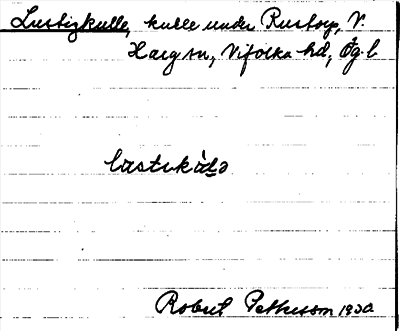 Lustigkulle, kulle under Rustorp, V.
Harg sn, Vifolka hd, Ög.l.
Robert Pettersson 1930